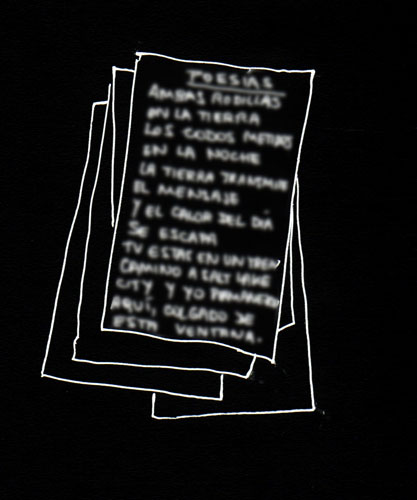 POESÍAS
AMBAS RODILLAS
EN LA TIERRA
LOS CODOS METIDOS
EN LA NOCHE
LA TIERRA TRANSMITE
EL MENSAJE
Y EL CALOR DEL DÍA
SE ESCAPA
TU ESTAS EN UN TREN
CAMINO A SALT LAKE
CITY Y YO
AQUÍ, COLGADO DE
ESTA VENTANA.